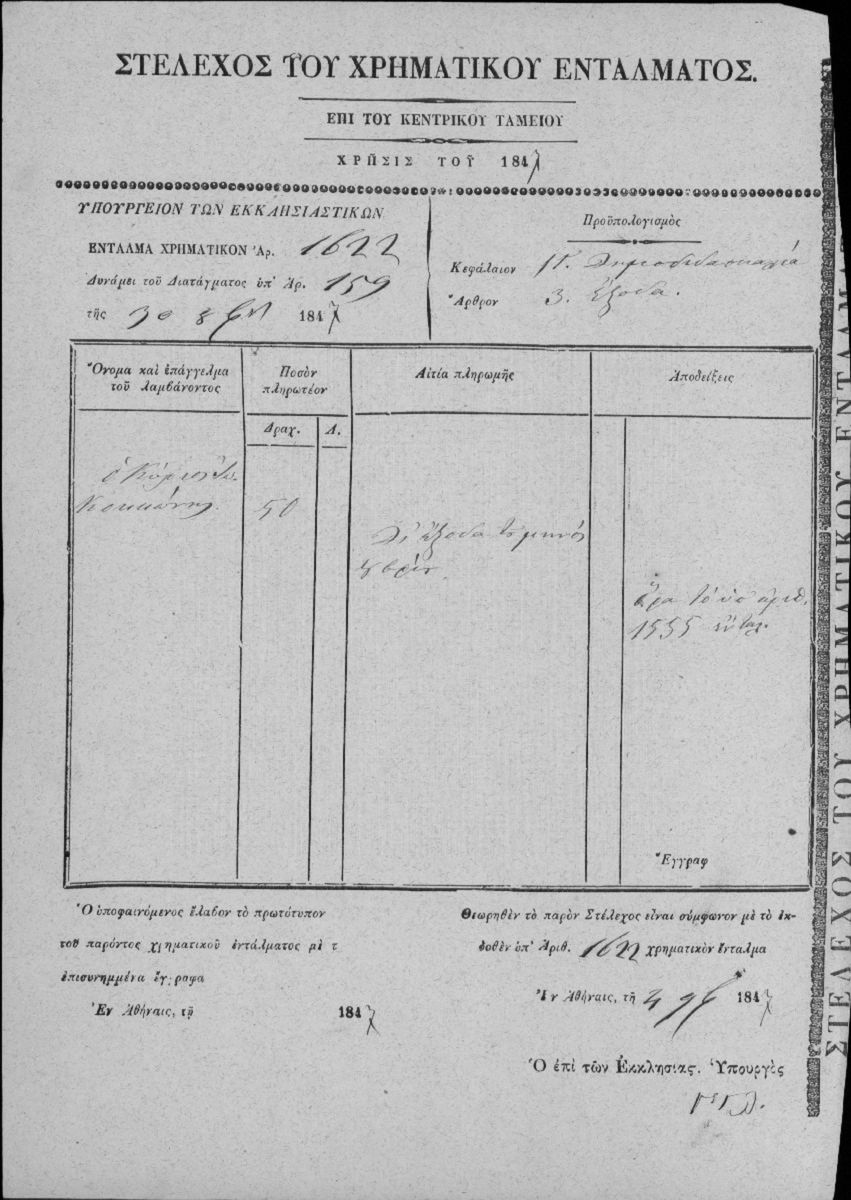 ΣΤΕΛΕΧΟΣ ΤΟΥ ΧΡΗΜΑΤΙΚΟΥ ΕΝΤΑΛΜΑΤΟΣ.
ΕΠΙ ΤΟΥ ΚΕΝΤΡΙΚΟΥ ΤΑΜΕΙΟΥ
ΧΡΗΣΙΣ ΤΟΥ 1847
ΥΠΟΥΡΓΕΙΟΝ ΤΩΝ ΕΚΚΛΗΣΙΑΣΤΙΚΩΝ
ΕΝΤΑΛΜΑ ΧΡΗΜΑΤΙΚΟΝ Ἀρ. 1622
Δυνάμει τοῦ Διατάγματος ὑπ' Ἀρ. 159
τῆς 30 8βρ 1847
Προϋπολογισμὸς
Κεφάλαιον Δημοδιδασκαλία
Ἄρθρον 3. Ἔξοδα.
Ὄνομα καὶ ἐπάγγελμα
τοῦ λαμβάνοντος
Ποσὸν
πληρωτέον
Αἰτία πληρωμῆς
Ἀποδείξεις
Δραχ. Λ.
ὁ Κύριος
Κοκκώνης 50
Δι' ἔξοδα τοῦ μηνὸς
8βρίου.
ὅρα τὸ ὑπ' ἀριθ.
1555 ἔνταλ.
Ἔγγραφ
Ὁ ὑποφαινόμενος ἔλαβον τὸ πρωτότυπον
τοῦ παρόντος χρηματικοῦ ἐντάλματος μὲ τ
ἐπισυνημμένα ἔγγραφα
Ἐν Ἀθήναις, τῇ 1847
Θεωρηθὲν τὸ παρὸν Στέλεχος εἶναι σύμφωνον μὲ τὸ ἐκ-
δοθὲν ὑπ' Ἀριθ. 1622 χρηματικὸν ἔνταλμα
Ἐν Ἀθήναις, τῇ 4 9βρ 1847
Ὁ ἐπὶ τῶν Ἐκκλησιας. Ὑπουργὸς
ΣΤΕΛΕΧΟΣ ΤΟΥ ΧΡΗΜΑΤΙΚΟΥ ΕΝΤΑΛΜΑ